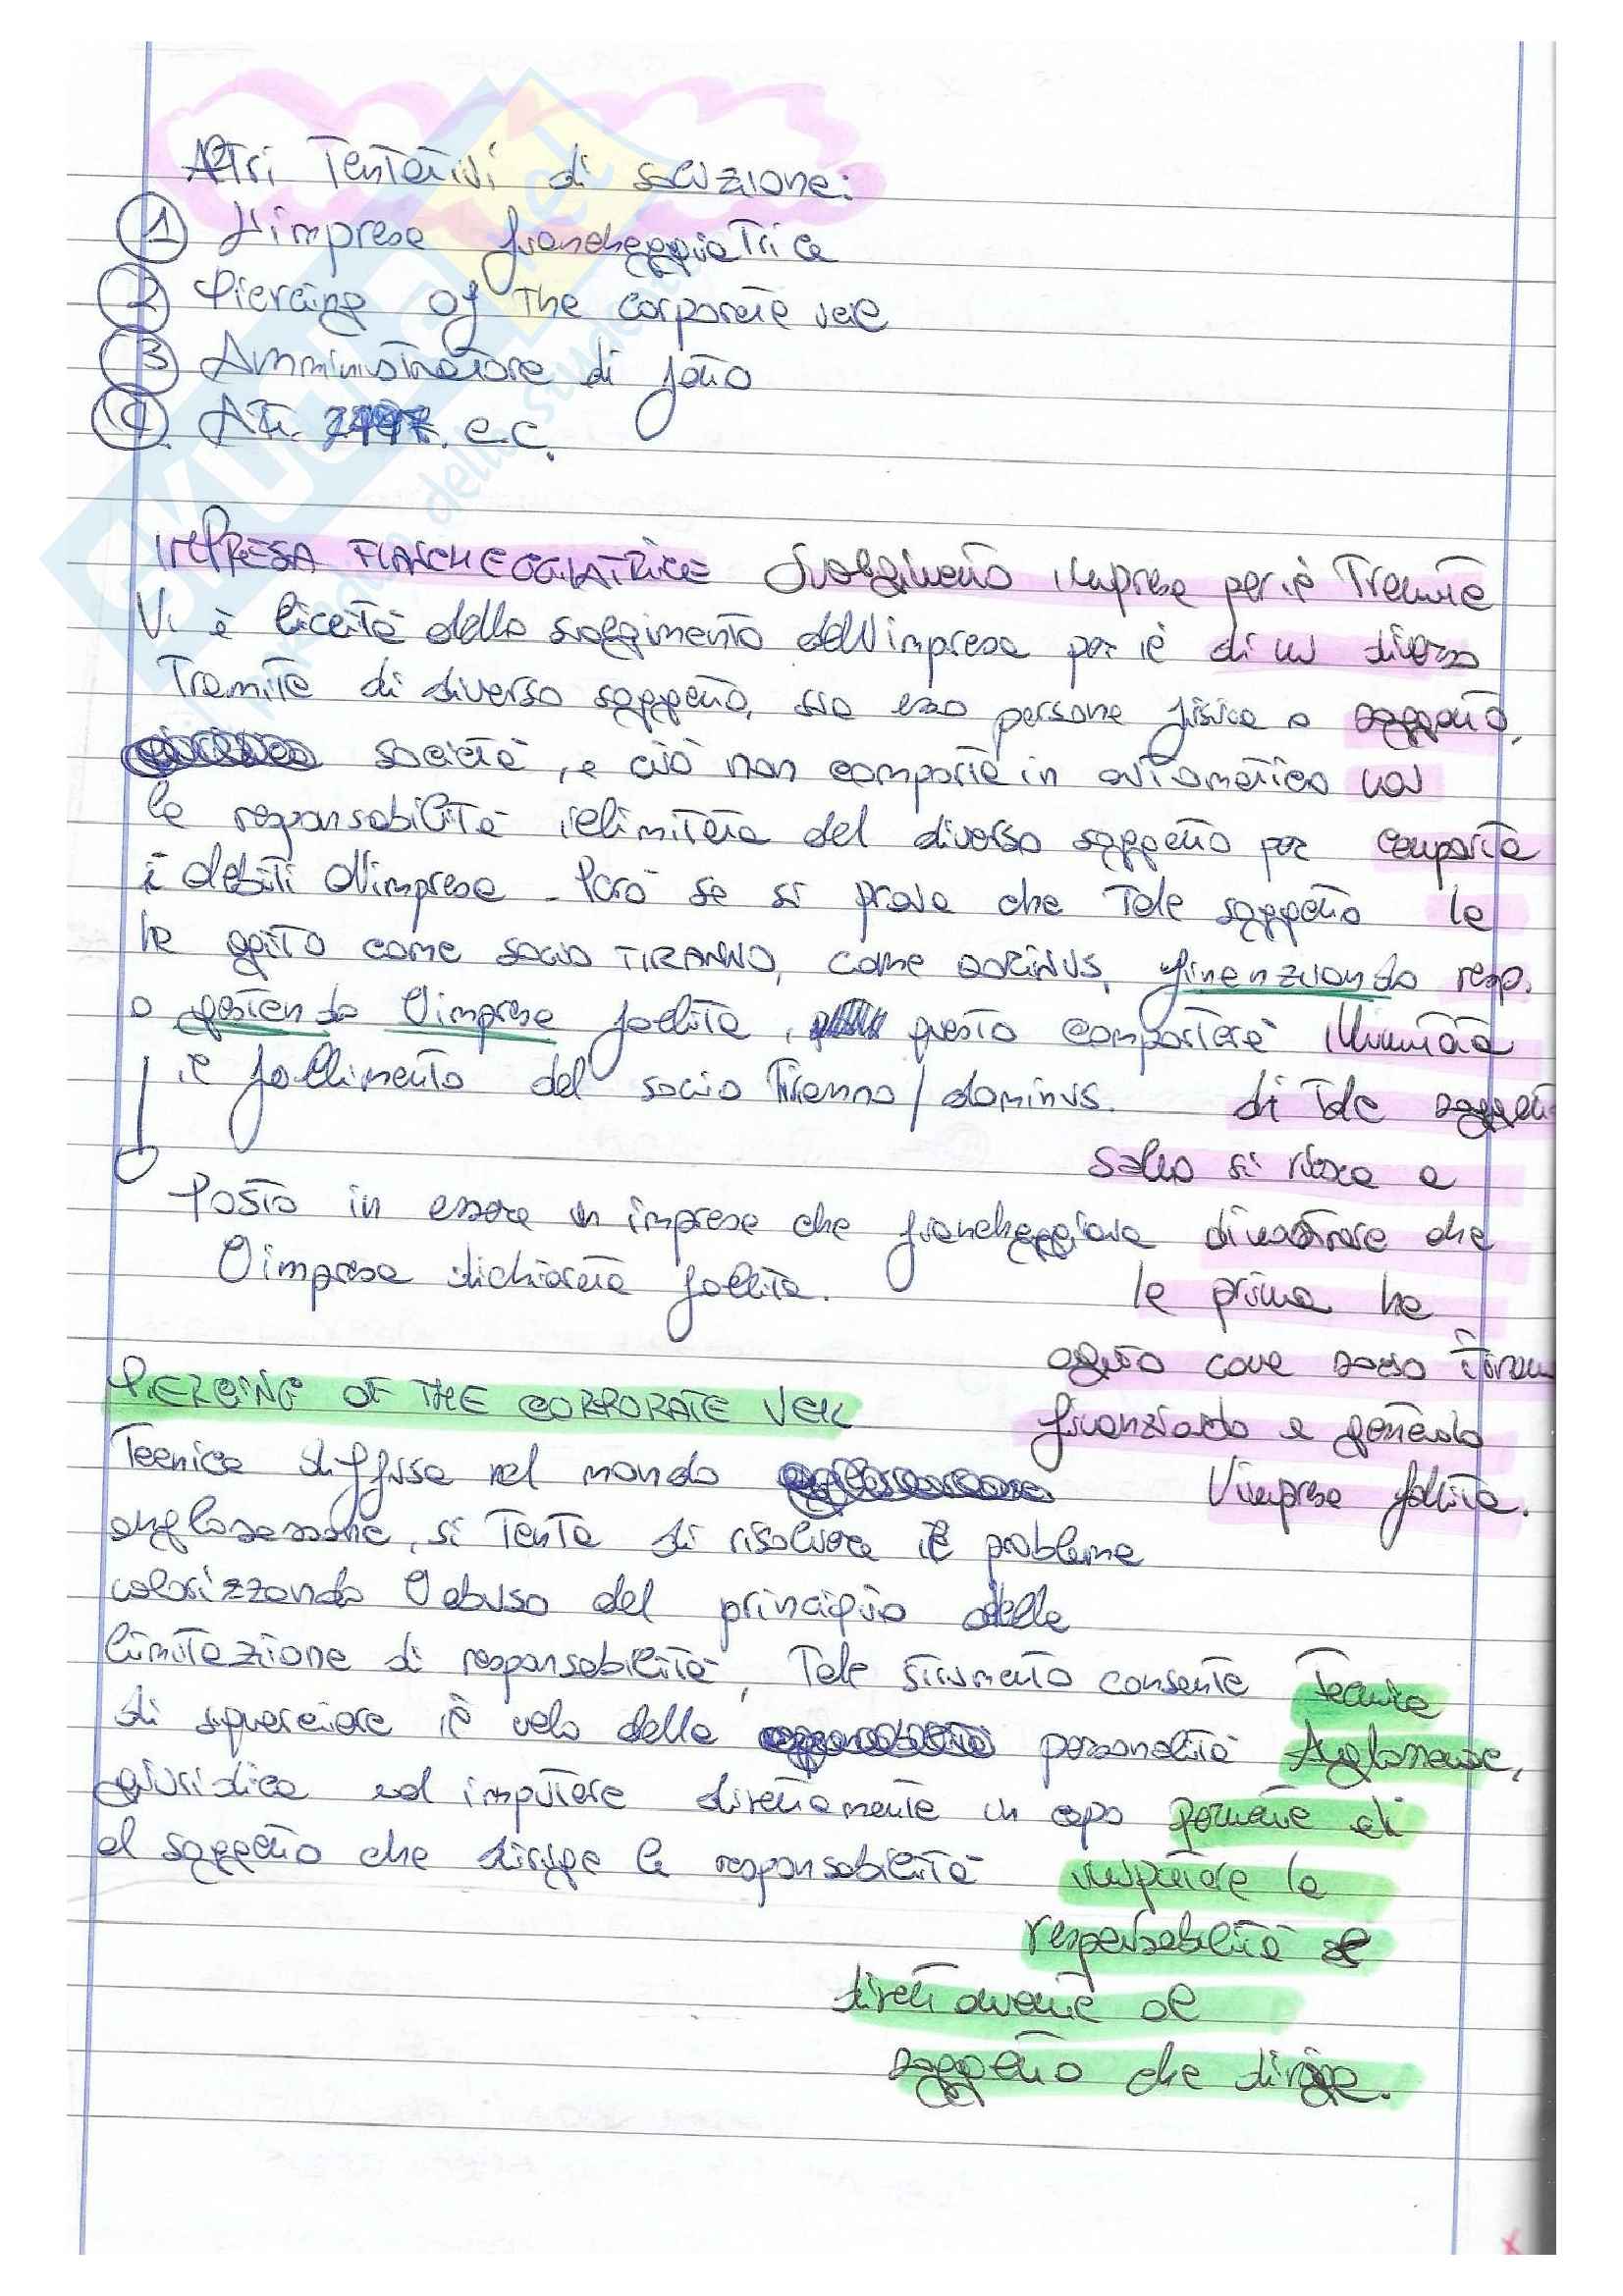 Altri Tentativi di soluzione:
1 L'impresa fiancheggiatrice
2 Piercing of the corporate veil
3 Amministratore di fatto
4 Art. e.c.
IMPRESA FIANCHEGGIATRICE
Vi è liceità dello svolgimento dell'impresa per il
Tramite di diverso soggetto, sia esso persona fisica o
società, e ciò non comporta in automatico
la responsabilità illimitata del diverso soggetto per
i debiti d'impresa. Però se si prova che Tale soggetto
ha agito come socio TIRANNO, come DOMINUS, finanziando
o gestendo l'impresa fallita, questo comporterà
il fallimento del socio Tiranno/dominus.
Posto in essere un impresa che fiancheggiava
l'impresa dichiarata fallita.
Svolgimento impresa per il Tramite
di un diverso
soggetto,
non
comporta
la
resp.
illimitata
di Tale soggetto
salvo si riesca a
dimostrare che
la prima ha
agito come socio tiran
finanziando e gestendo
l'impresa fallita.
PIERCING OF THE CORPORATE VEIL
Tecnica diffusa nel mondo
anglosassone, si Tenta di risolvere il problema
valorizzando l'abuso del principio della
limitazione di responsabilità, Tale strumento consente
di squarciare il velo della personalità
giuridica ed imputare direttamente in capo
al soggetto che dirige la responsabilità
Tecnica
Anglosassone,
permette di
imputare la
responsabilità
direttamente al
soggetto che dirige.